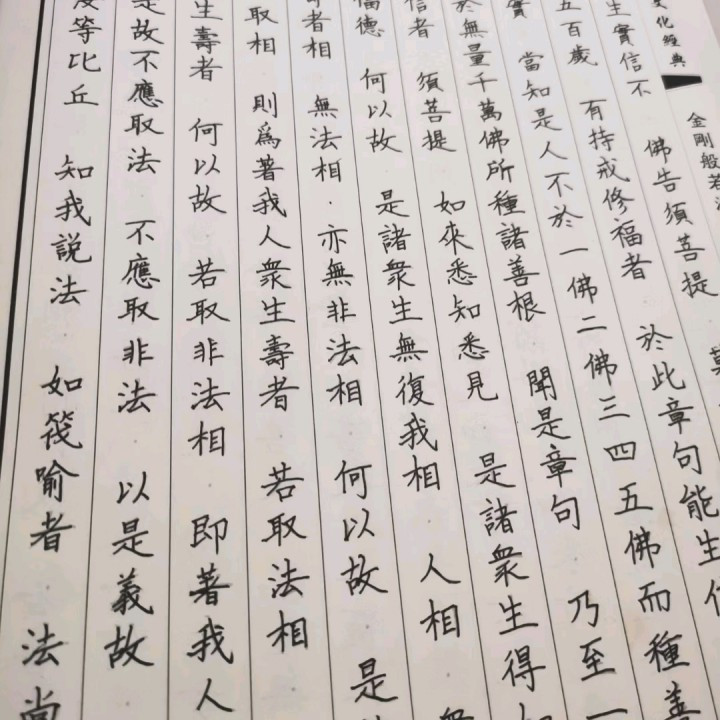 文化經典 金剛般若
生實信不 佛告須菩提
五百歲 有持戒修福者 於此章句能生信
實 當知是人不於一佛二佛三四五佛而種善
於無量千萬佛所種諸善根 聞是章句 乃至一
信者 須菩提 如來悉知悉見 是諸衆生得
福德 何以故 是諸衆生無復我相 人相
壽者相 無法相 亦無非法相 何以故 是
取相 則爲著我人衆生壽者 若取法相
生壽者 何以故 若取非法相 即著我人
是故不應取法 不應取非法 以是義故
等比丘 知我說法 如筏喻者 法尚